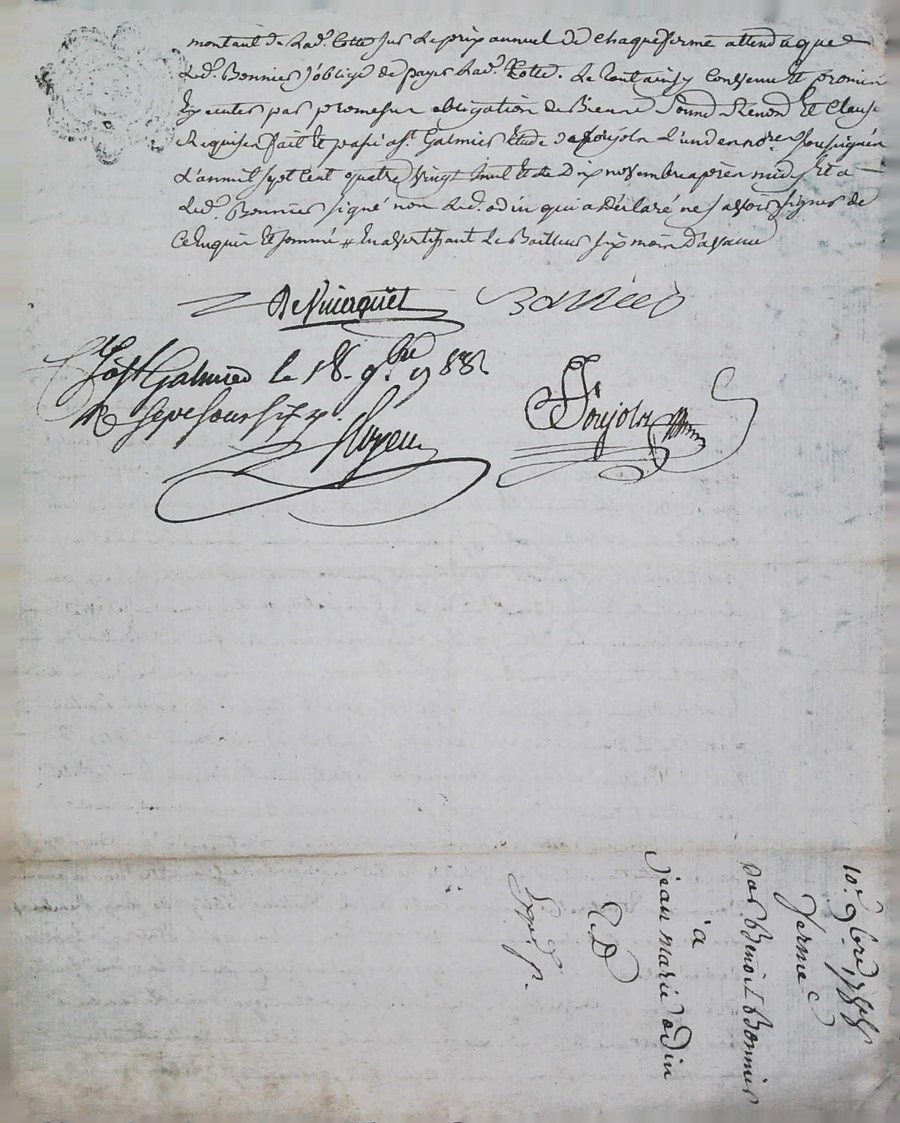 montant de lad. Cotte sur le prix annuel de chaque ferme attendu que
led. Bonnier s'oblige de payer lad. Cotte. Le tout ainsy convenu et promis
Executer par promesse obligation de Biens Soumd. Renond. Et Clauses
Requises fait et passé a St. Galmier Etude de Poujola l'un des no.res Soussignés
L'an mil sept cent quatre vingt huit et le dix novembre après midy Et a
led. Bonnier signé non led. odin qui a déclaré ne savoir signer de
ce Enquis Et sommé # En avertissant le Bailleur six mois d'avance
Bonnier
a St Galmier le 18. 9bre 1788
R sept sous six d.
Royeu
Poujola
10e 9bre 1788
ferme
par Benoit Bonnier
à
jean marie odin
E.D
Exped. f.